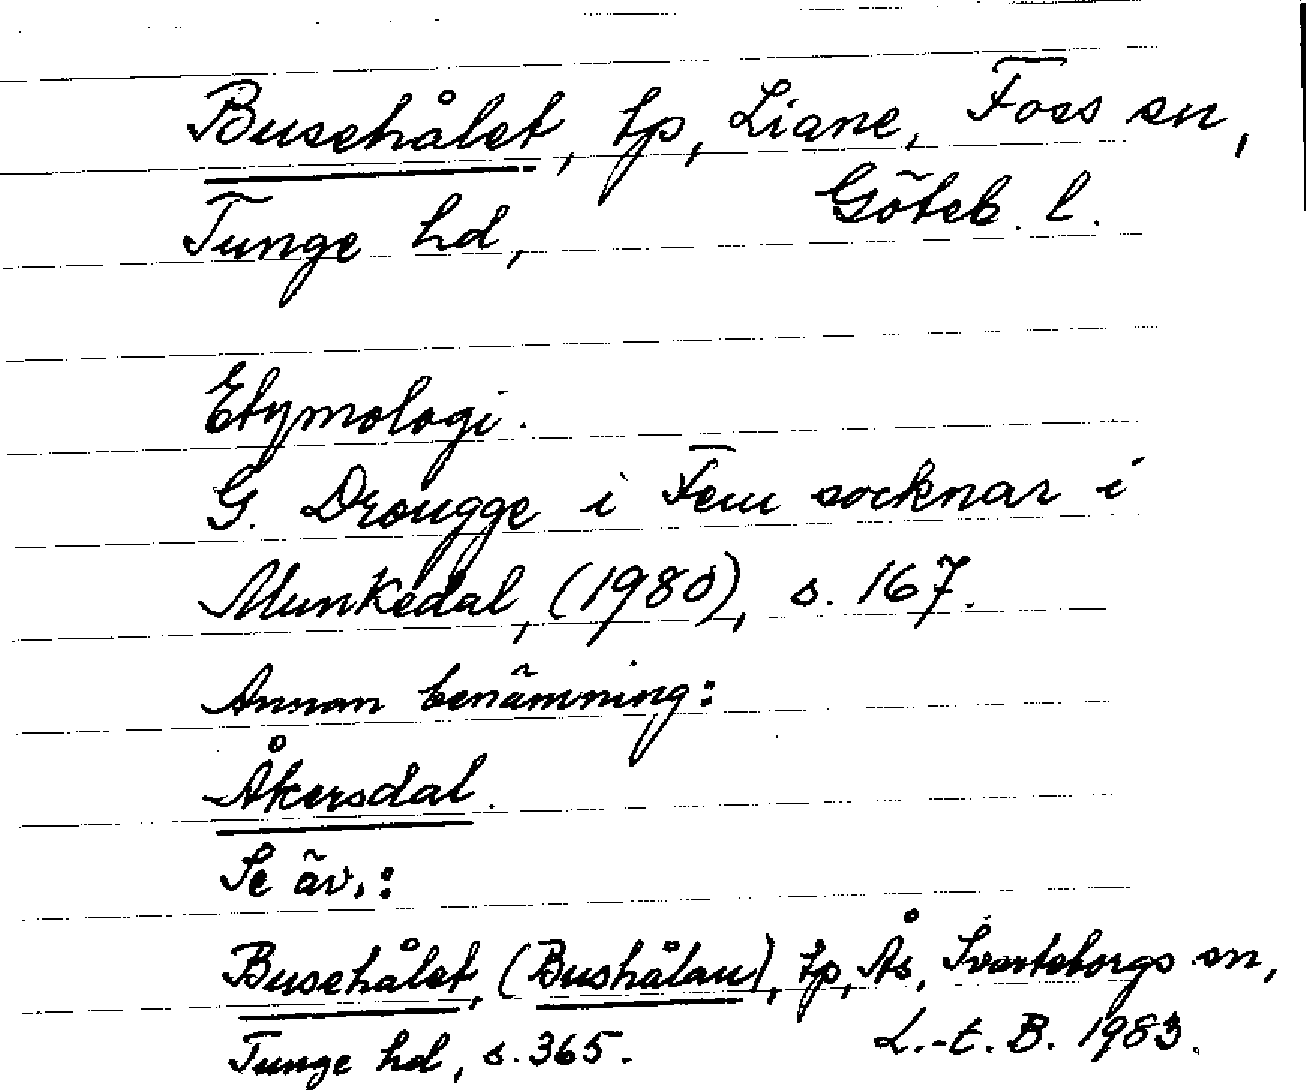 Busehålet, tp, Liane, Foss sn,
Tunge hd, Göteb. l.
Etymologi.
G. Drougge i Fem socknar i
Munkedal, (1980), s. 167.
Annan benämning:
Åkersdal.
Se äv.:
Busehålet, (Bushålau), tp, Ås, Svarteborgs sn,
Tunge hd, s. 365. L.-t. B. 1983.